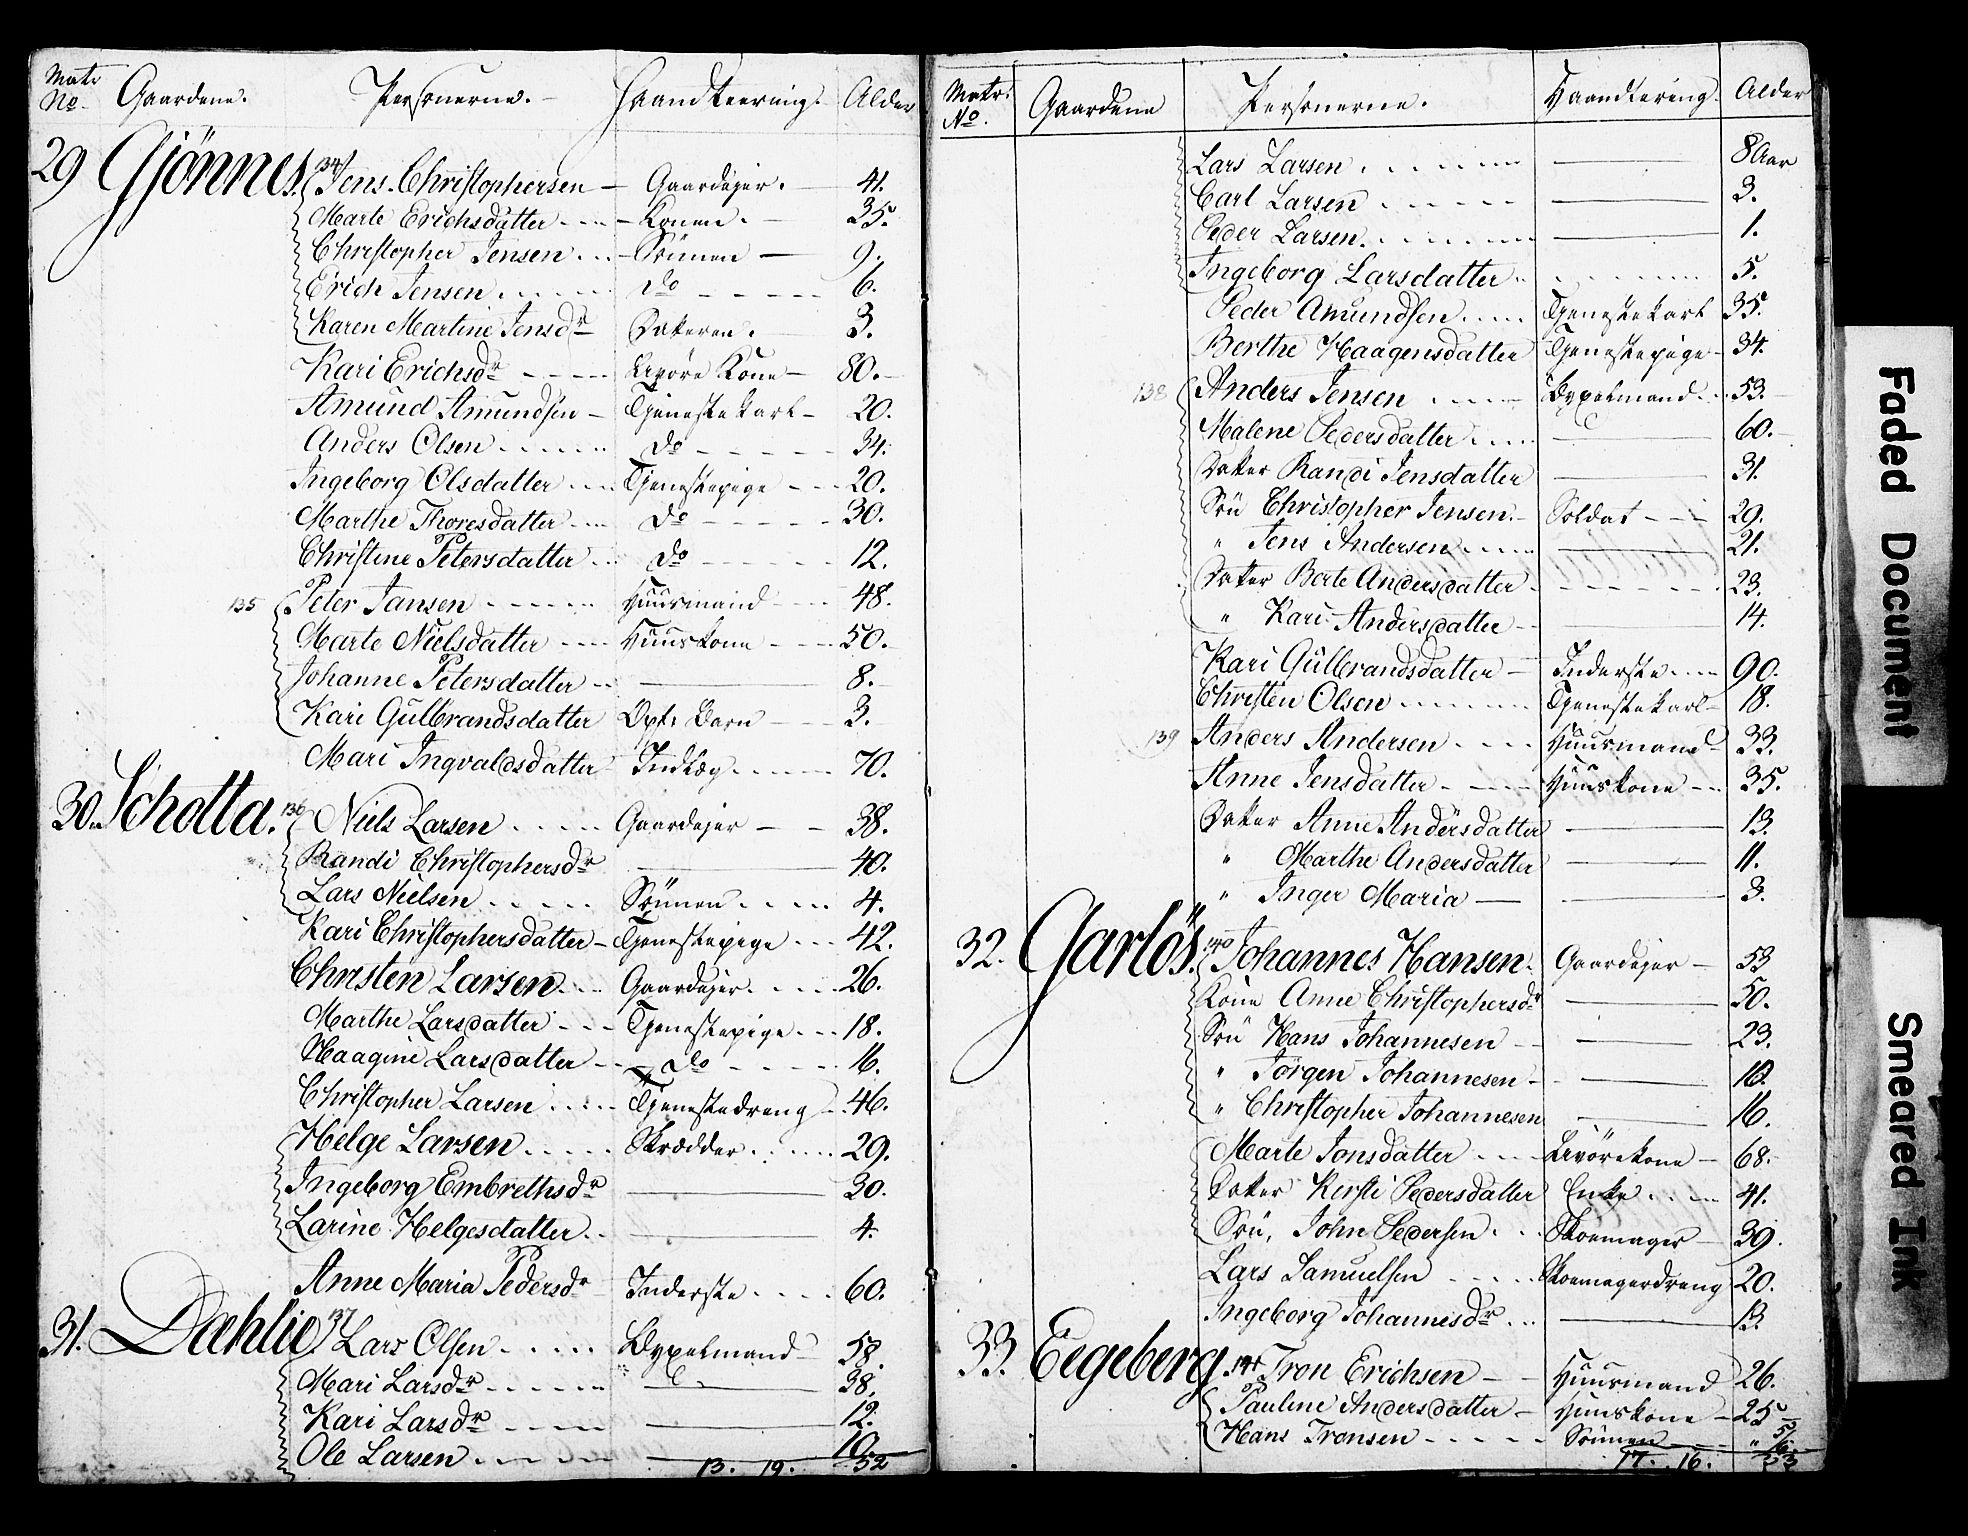 Matr No. Gaardene. Personerne. Haandteering. Alder
29 Gjönnes. 134 Jens Christophersen Gaardejer. 41.
Marte Erichsdatter Konen. 35.
Christopher Jensen Sönnen 9.
Erich Jensen do 6.
Karen Martine Jensdr Datteren. 3.
Kari Erichsdr Livöre Kone 80.
Amund Amundsen Tjenestekarl 20.
Anders Olsen do 34.
Ingeborg Olsdatter Tjenestepige 20.
Marthe Thoresdatter do 30.
Christine Petersdatter do 12.
135 Peter Jansen Huusmand 48.
Marte Nielsdatter Huuskone 50.
Johanne Petersdatter 8.
Kari Gulbrandsdatter Opf: Barn 3.
Mari Ingvaldsdatter Indlæg 70.
30. Schotta. 136 Niels Larsen Gaardejer 38.
Randi Christophersdr 40.
Lars Nielsen Sönnen 4.
Kari Christophersdatter Tjenestepige 42.
Christen Larsen Gaardejer 26.
Marthe Larsdatter Tjenestepige 18.
Haagine Larsdatter do 16.
Christopher Larsen Tjenestedreng 46.
Helge Larsen Skrædder 29.
Ingeborg Embrethsdr 30.
Larine Helgesdatter 4.
Anne Maria Pedersdr Inderste 60.
31. Dæhlie 137 Lars Olsen Bygselmand 58.
Mari Larsdr 38.
Kari Larsdr 12.
Ole Larsen 10.
13. 19. 32
Matr: No. Gaardene Personerne. Haandtering. Alder
Lars Larsen 8 Aar
Carl Larsen 3.
Peder Larsen 1.
Ingeborg Larsdatter 5.
Peder Amundsen Tjenestekarl 35.
Berthe Haagensdatter Tjenestepige 34.
138 Anders Jensen Bygselmand 53.
Malene Pedersdatter 60.
Datter Randi Jensdatter 31.
Sön Christopher Jensen Soldat 29.
" Jens Andersen 21.
Datter Berte Andersdatter 23.
" Kari Andersdatter 14.
Kari Gulbrandsdatter Inderste 90.
Christen Olsen Tjenestekarl 18.
139 Anders Andersen Huusmand 33.
Anne Jensdatter Huuskone 35.
Datter Anne Andersdatter 13.
" Marthe Andersdatter 11.
" Inger Maria 3.
32. Garlös. 140 Johannes Hansen Gaardejer 53
Kone Anne Christophersdr 50.
Sön Hans Johannesen 23.
" Jörgen Johannesen 18.
" Christopher Johannesen 16.
Marte Jonsdatter Livörekone 68.
Datter Kersti Pedersdatter Enke 41.
Sön, John Pedersen Skoemager 39.
Lars Samuelsen Skoemagerdreng 20.
Ingeborg Johannisdr 13.
33. Eegeberg. 141 Tron Erichsen Huusmand 26.
Pauline Andersdatter Huuskone 25
Hans Tronsen Sönnen
17. 16. 33
Faded Document
Smeared Ink